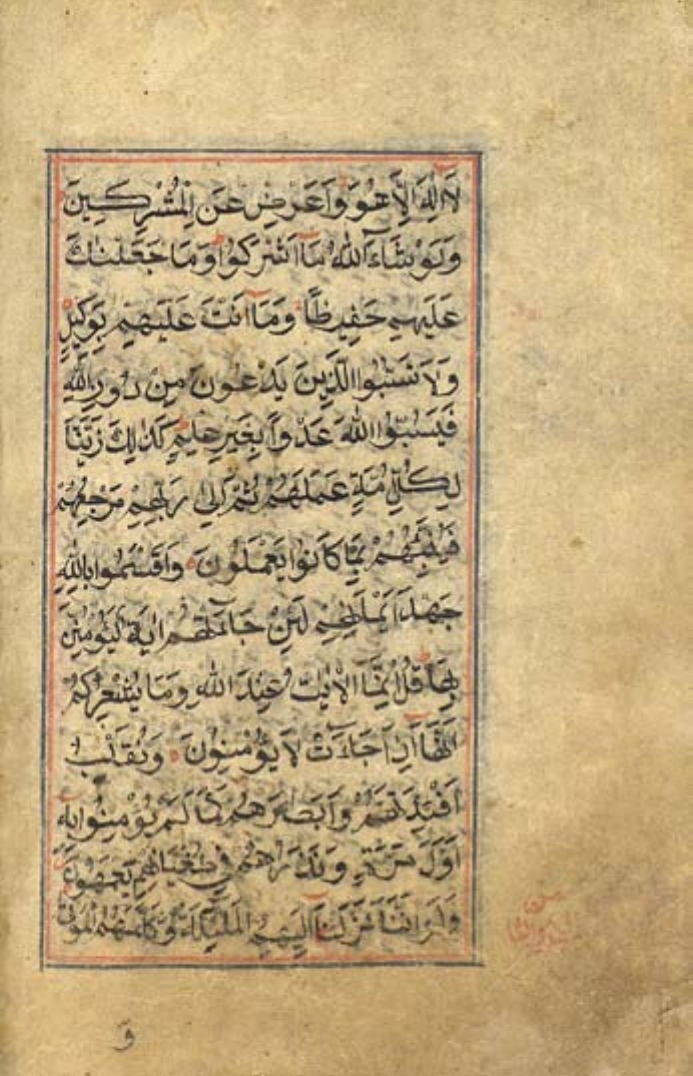 لَا إِلَهَ إِلَّا هُوَ وَأَعْرِضْ عَنِ الْمُشْرِكِينَ
وَلَوْ شَاءَ اللَّهُ مَا أَشْرَكُوا وَمَا جَعَلْنَاكَ
عَلَيْهِمْ حَفِيظًا وَمَا أَنْتَ عَلَيْهِمْ بِوَكِيلٍ
وَلَا تَسُبُّوا الَّذِينَ يَدْعُونَ مِنْ دُونِ اللَّهِ
فَيَسُبُّوا اللَّهَ عَدْوًا بِغَيْرِ عِلْمٍ كَذَلِكَ زَيَّنَّا
لِكُلِّ أُمَّةٍ عَمَلَهُمْ ثُمَّ إِلَى رَبِّهِمْ مَرْجِعُهُمْ
فَيُنَبِّئُهُمْ بِمَا كَانُوا يَعْمَلُونَ وَأَقْسَمُوا بِاللَّهِ
جَهْدَ أَيْمَانِهِمْ لَئِنْ جَاءَتْهُمْ آيَةٌ لَيُؤْمِنُنَّ
بِهَا قُلْ إِنَّمَا الْآيَاتُ عِنْدَ اللَّهِ وَمَا يُشْعِرُكُمْ
أَنَّهَا إِذَا جَاءَتْ لَا يُؤْمِنُونَ وَنُقَلِّبُ
أَفْئِدَتَهُمْ وَأَبْصَارَهُمْ كَمَا لَمْ يُؤْمِنُوا بِهِ
أَوَّلَ مَرَّةٍ وَنَذَرُهُمْ فِي طُغْيَانِهِمْ يَعْمَهُونَ
وَلَوْ أَنَّنَا نَزَّلْنَا إِلَيْهِمُ الْمَلَائِكَةَ وَكَلَّمَهُمُ الْمَوْتَى
وَ